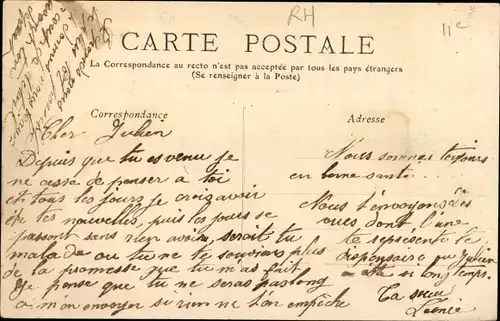 RH
11e
CARTE POSTALE
La Correspondance au recto n'est pas acceptée par tous les pays étrangers
(Se renseigner à la Poste)
Correspondance
Adresse
Cher Julien
Depuis que tu es venu je
ne cesse de penser a toi
et tous les jours je crois avoir
des nouvelles, puis les jours se
passent sans rien avoir, serait tu
malade ou tu ne te souviens plus
de la promesse que tu m'as fait
Je pense que tu ne seras pas long
a m'en envoyer si rien ne t'en empêche
Nous sommes toujours
en bonne santé...
Nous t'envoyons des
vues dont l'une
te représente le
dispensaire ou Julien
a été si longtemps.
Ta sœur
Léonie